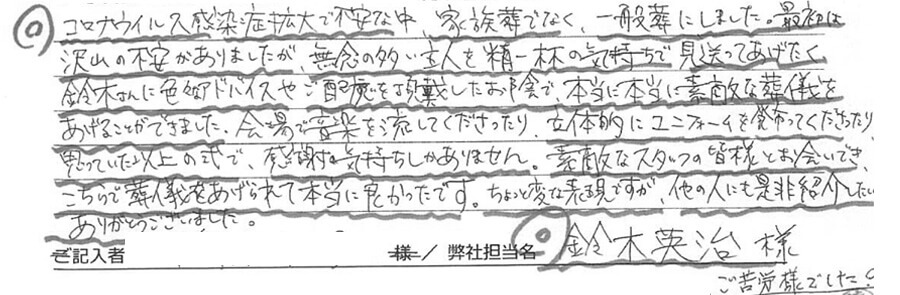 コロナウイルス感染症拡大で不安な中、家族葬でなく、一般葬にしました。最初は
沢山の不安がありましたが、無念の多い主人を精一杯の気持ちで見送ってあげたく
鈴木さんに色々アドバイスやご配慮を頂戴したお陰で、本当に本当に素敵な葬儀を
あげることができました。会場で音楽を流してくださったり、立体的にユニフォームを飾ってくださったり、
思っていた以上の式で、感謝の気持ちしかありません。素敵なスタッフの皆様とお会いでき、
こちらで葬儀をあげられて本当に良かったです。ちょっと変な表現ですが、他の人にも是非紹介したい
ありがとうございました。
ご記入者 様 / 弊社担当名 鈴木英治 様
ご苦労様でした。